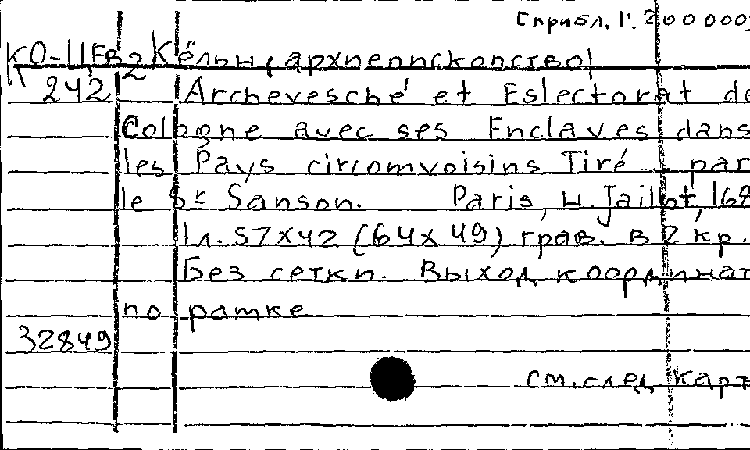 Cприбл. 1:200000
КО-11ЕВ2 Кёльн (архиепископство)
242 Archevesché et Eslectorat de
Cologne avec ses Enclaves dans
les Pays circomvoisins Tiré par
le Sr Sanson. Paris, H. Jaillot, 168
1л. 57x42 (64x49) грав. в 2 кр.
Без сетки. Выход координат
по рамке
32849
См. след карт